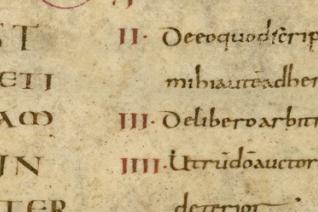 ST
ETI
AM
IN
TER
II· De eo quod scrip
mihi autē adher
III· De libero arbitr
IIII· Utrū dō auctor
deterior